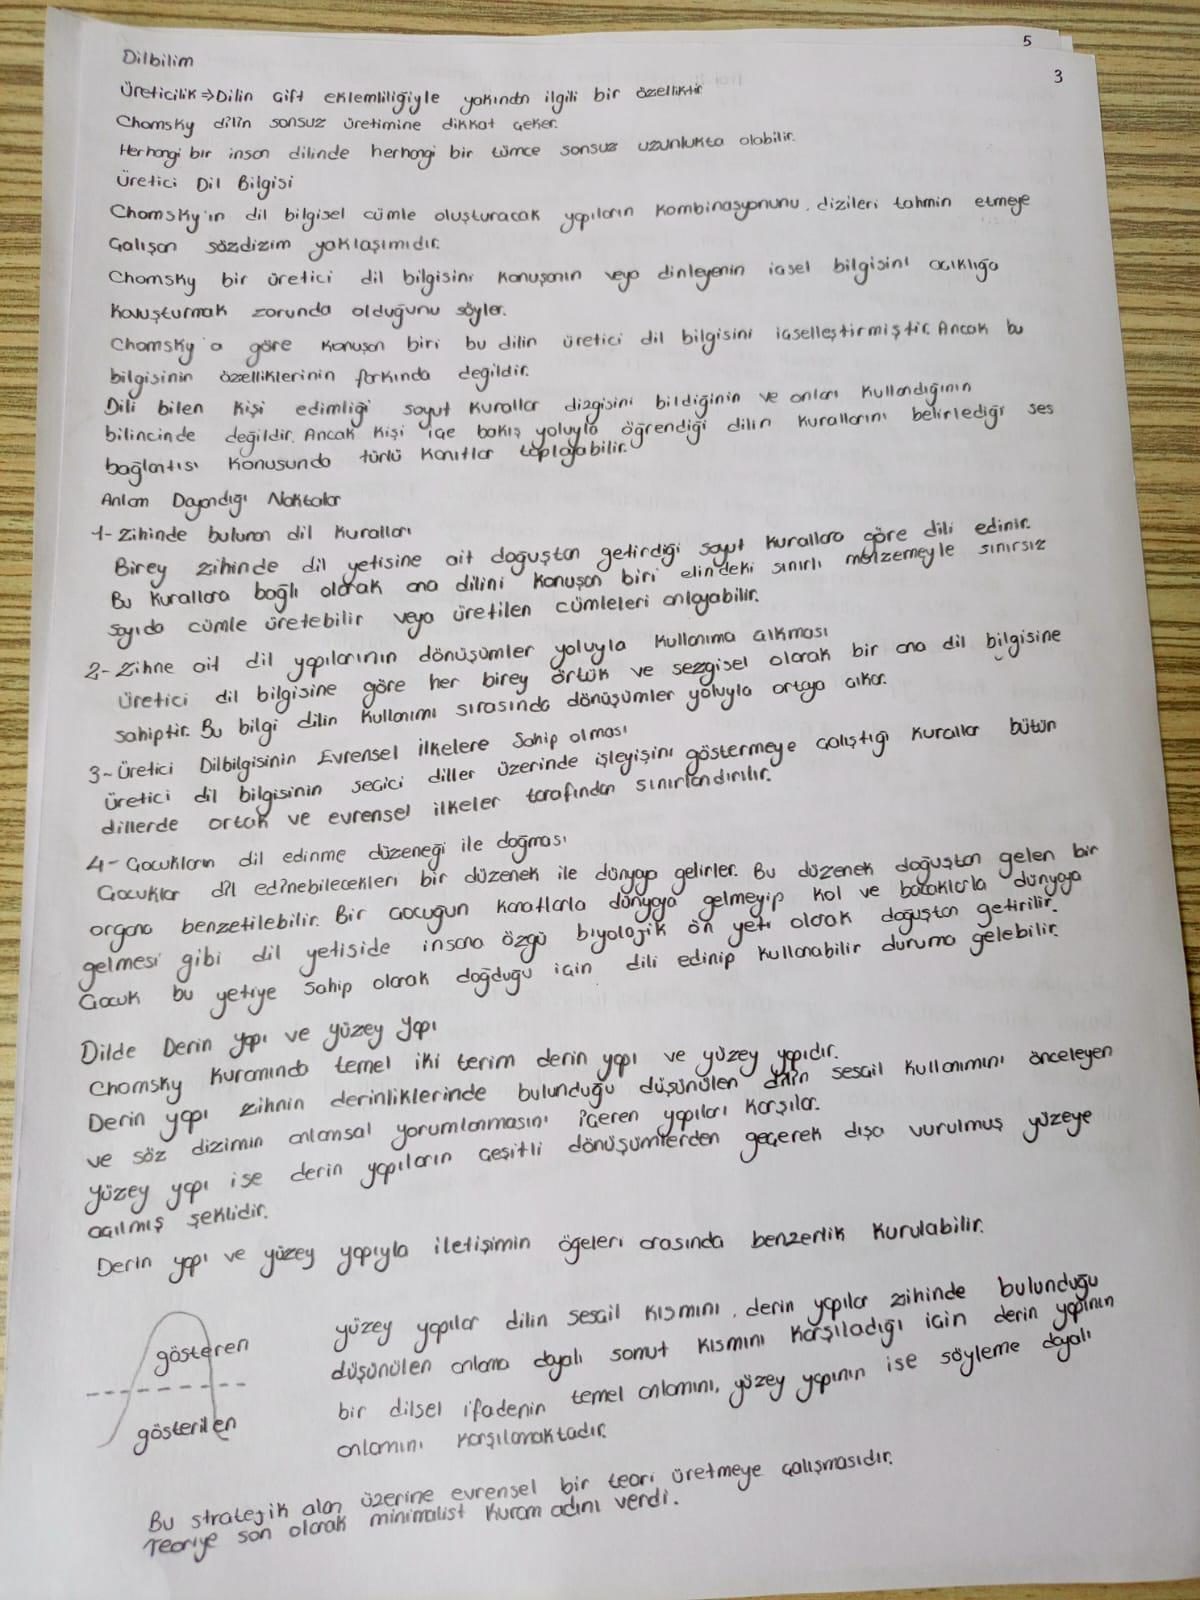 5
3
Dilbilim
Üreticilik⇒Dilin çift eklemliliğiyle yakından ilgili bir özelliktir
Chomsky dilin sonsuz üretimine dikkat çeker.
Herhangi bir insan dilinde herhangi bir tümce sonsuz uzunlukta olabilir.
Üretici Dil Bilgisi
Chomsky'ın dil bilgisel cümle oluşturacak yapıların kombinasyonunu, dizileri tahmin etmeye
çalışan sözdizim yaklaşımıdır.
Chomsky bir üretici dil bilgisini konuşanın veya dinleyenin içsel bilgisini açıklığa
kavuşturmak zorunda olduğunu söyler.
Chomsky'a göre konuşan biri bu dilin üretici dil bilgisini içselleştirmiştir. Ancak bu
bilgisinin özelliklerinin farkında değildir.
Dili bilen kişi edimliği soyut kurallar dizgisini bildiğinin ve onları kullandığının
bilincinde değildir. Ancak kişi içe bakış yoluyla öğrendiği dilin kurallarını belirlediği ses
bağlantısı konusunda türlü kanıtlar toplayabilir.
Anlam Dayandığı Noktalar
1- Zihinde bulunan dil kuralları
Birey zihinde dil yetisine ait doğuştan getirdiği soyut kurallara göre dili edinir.
Bu kurallara bağlı olarak ana dilini konuşan biri elindeki sınırlı malzemeyle sınırsız
sayıda cümle üretebilir veya üretilen cümleleri anlayabilir.
2- Zihne ait dil yapılarının dönüşümler yoluyla kullanıma çıkması
Üretici dil bilgisine göre her birey örtük ve sezgisel olarak bir ana dil bilgisine
sahiptir. Bu bilgi dilin kullanımı sırasında dönüşümler yoluyla ortaya çıkar.
3- Üretici Dilbilgisinin Evrensel İlkelere Sahip olması
Üretici dil bilgisinin seçici diller üzerinde işleyişini göstermeye çalıştığı kurallar bütün
dillerde ortak ve evrensel ilkeler tarafından sınırlandırılır.
4- Çocukların dil edinme düzeneği ile doğması
Çocuklar dil edinebilecekleri bir düzenek ile dünyaya gelirler. Bu düzenek doğuştan gelen bir
organa benzetilebilir. Bir çocuğun kanatlarla dünyaya gelmeyip kol ve bacaklarla dünyaya
gelmesi gibi dil yetiside insana özgü biyolojik ön yeti olarak doğuştan getirilir.
Çocuk bu yetiye sahip olarak doğduğu için dili edinip kullanabilir duruma gelebilir.
Dilde Derin yapı ve yüzey yapı
Chomsky kuramında temel iki terim derin yapı ve yüzey yapıdır.
Derin yapı zihnin derinliklerinde bulunduğu düşünülen dilin sesçil kullanımını önceleyen
ve söz dizimin anlamsal yorumlanmasını içeren yapıları karşılar.
Yüzey yapı ise derin yapıların çeşitli dönüşümlerden geçerek dışa vurulmuş yüzeye
açılmış şeklidir.
Derin yapı ve yüzey yapıyla iletişimin öğeleri arasında benzerlik kurulabilir.
gösteren
gösterilen
yüzey yapılar dilin sesçil kısmını, derin yapılar zihinde bulunduğu
düşünülen anlama dayalı somut kısmını karşıladığı için derin yapının
bir dilsel ifadenin temel anlamını, yüzey yapının ise söyleme dayalı
anlamını karşılamaktadır.
Bu stratejik alan üzerine evrensel bir teori üretmeye çalışmasıdır.
Teoriye son olarak minimalist kuram adını verdi.